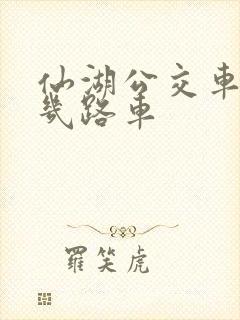 仙湖公交車
幾路車
羅笑虎